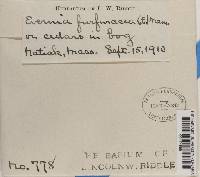 HERBARIUM OF L. W. RIDDLE
Evernia furfuracea (L.) Mann
on cedars in bog
Natick, Mass. Sept. 15, 1910
No. 778
HERBARIUM OF
LINCOLN W. RIDDLE